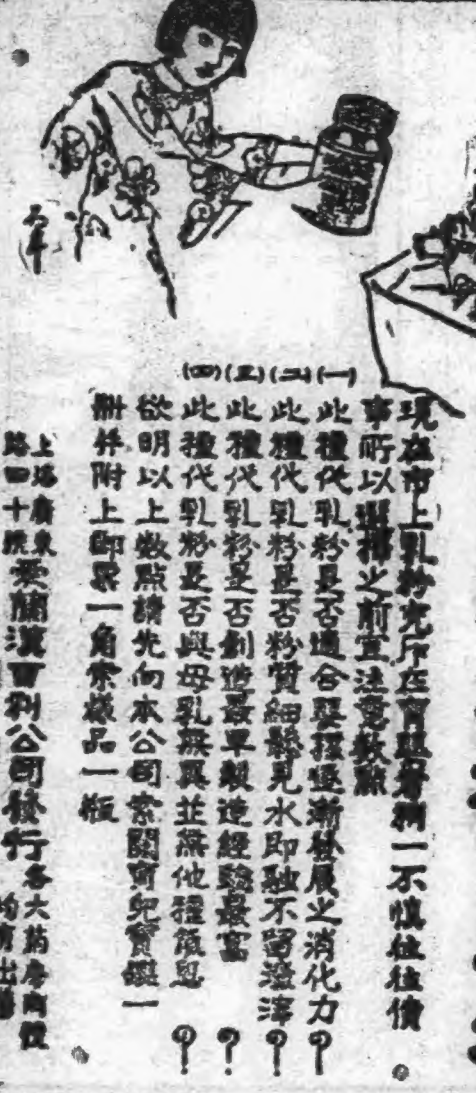 現在市上乳粉充斥在育嬰者稍一不慎往往僨
事所以選擇之前宜注意數點
(一)此種代乳粉是否適合嬰孩逐漸發展之消化力?
(二)此種代乳粉是否粉質細鬆見水即融不留渣滓?
(三)此種代乳粉是否創造最早製造經驗最富?
(四)此種代乳粉是否與母乳無異並無他種?
欲明以上數點請先向本公司索閱育兒寶鑑一
冊并附上郵票一角索樣品一瓶
上海廣東
路四十號
愛蘭漢百利公司發行
各大藥房商號
均有出售